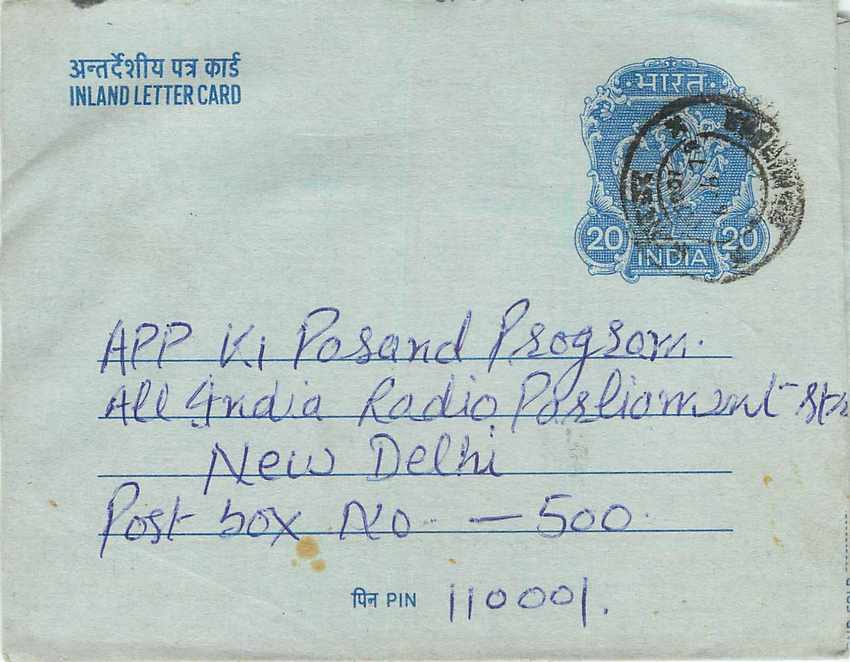 अन्तर्देशीय पत्र कार्ड
INLAND LETTER CARD
भारत
20 20
INDIA
APP Ki Pasand Program.
All India Radio Parliament Str
New Delhi
Post box No. — 500.
पिन PIN 110001.